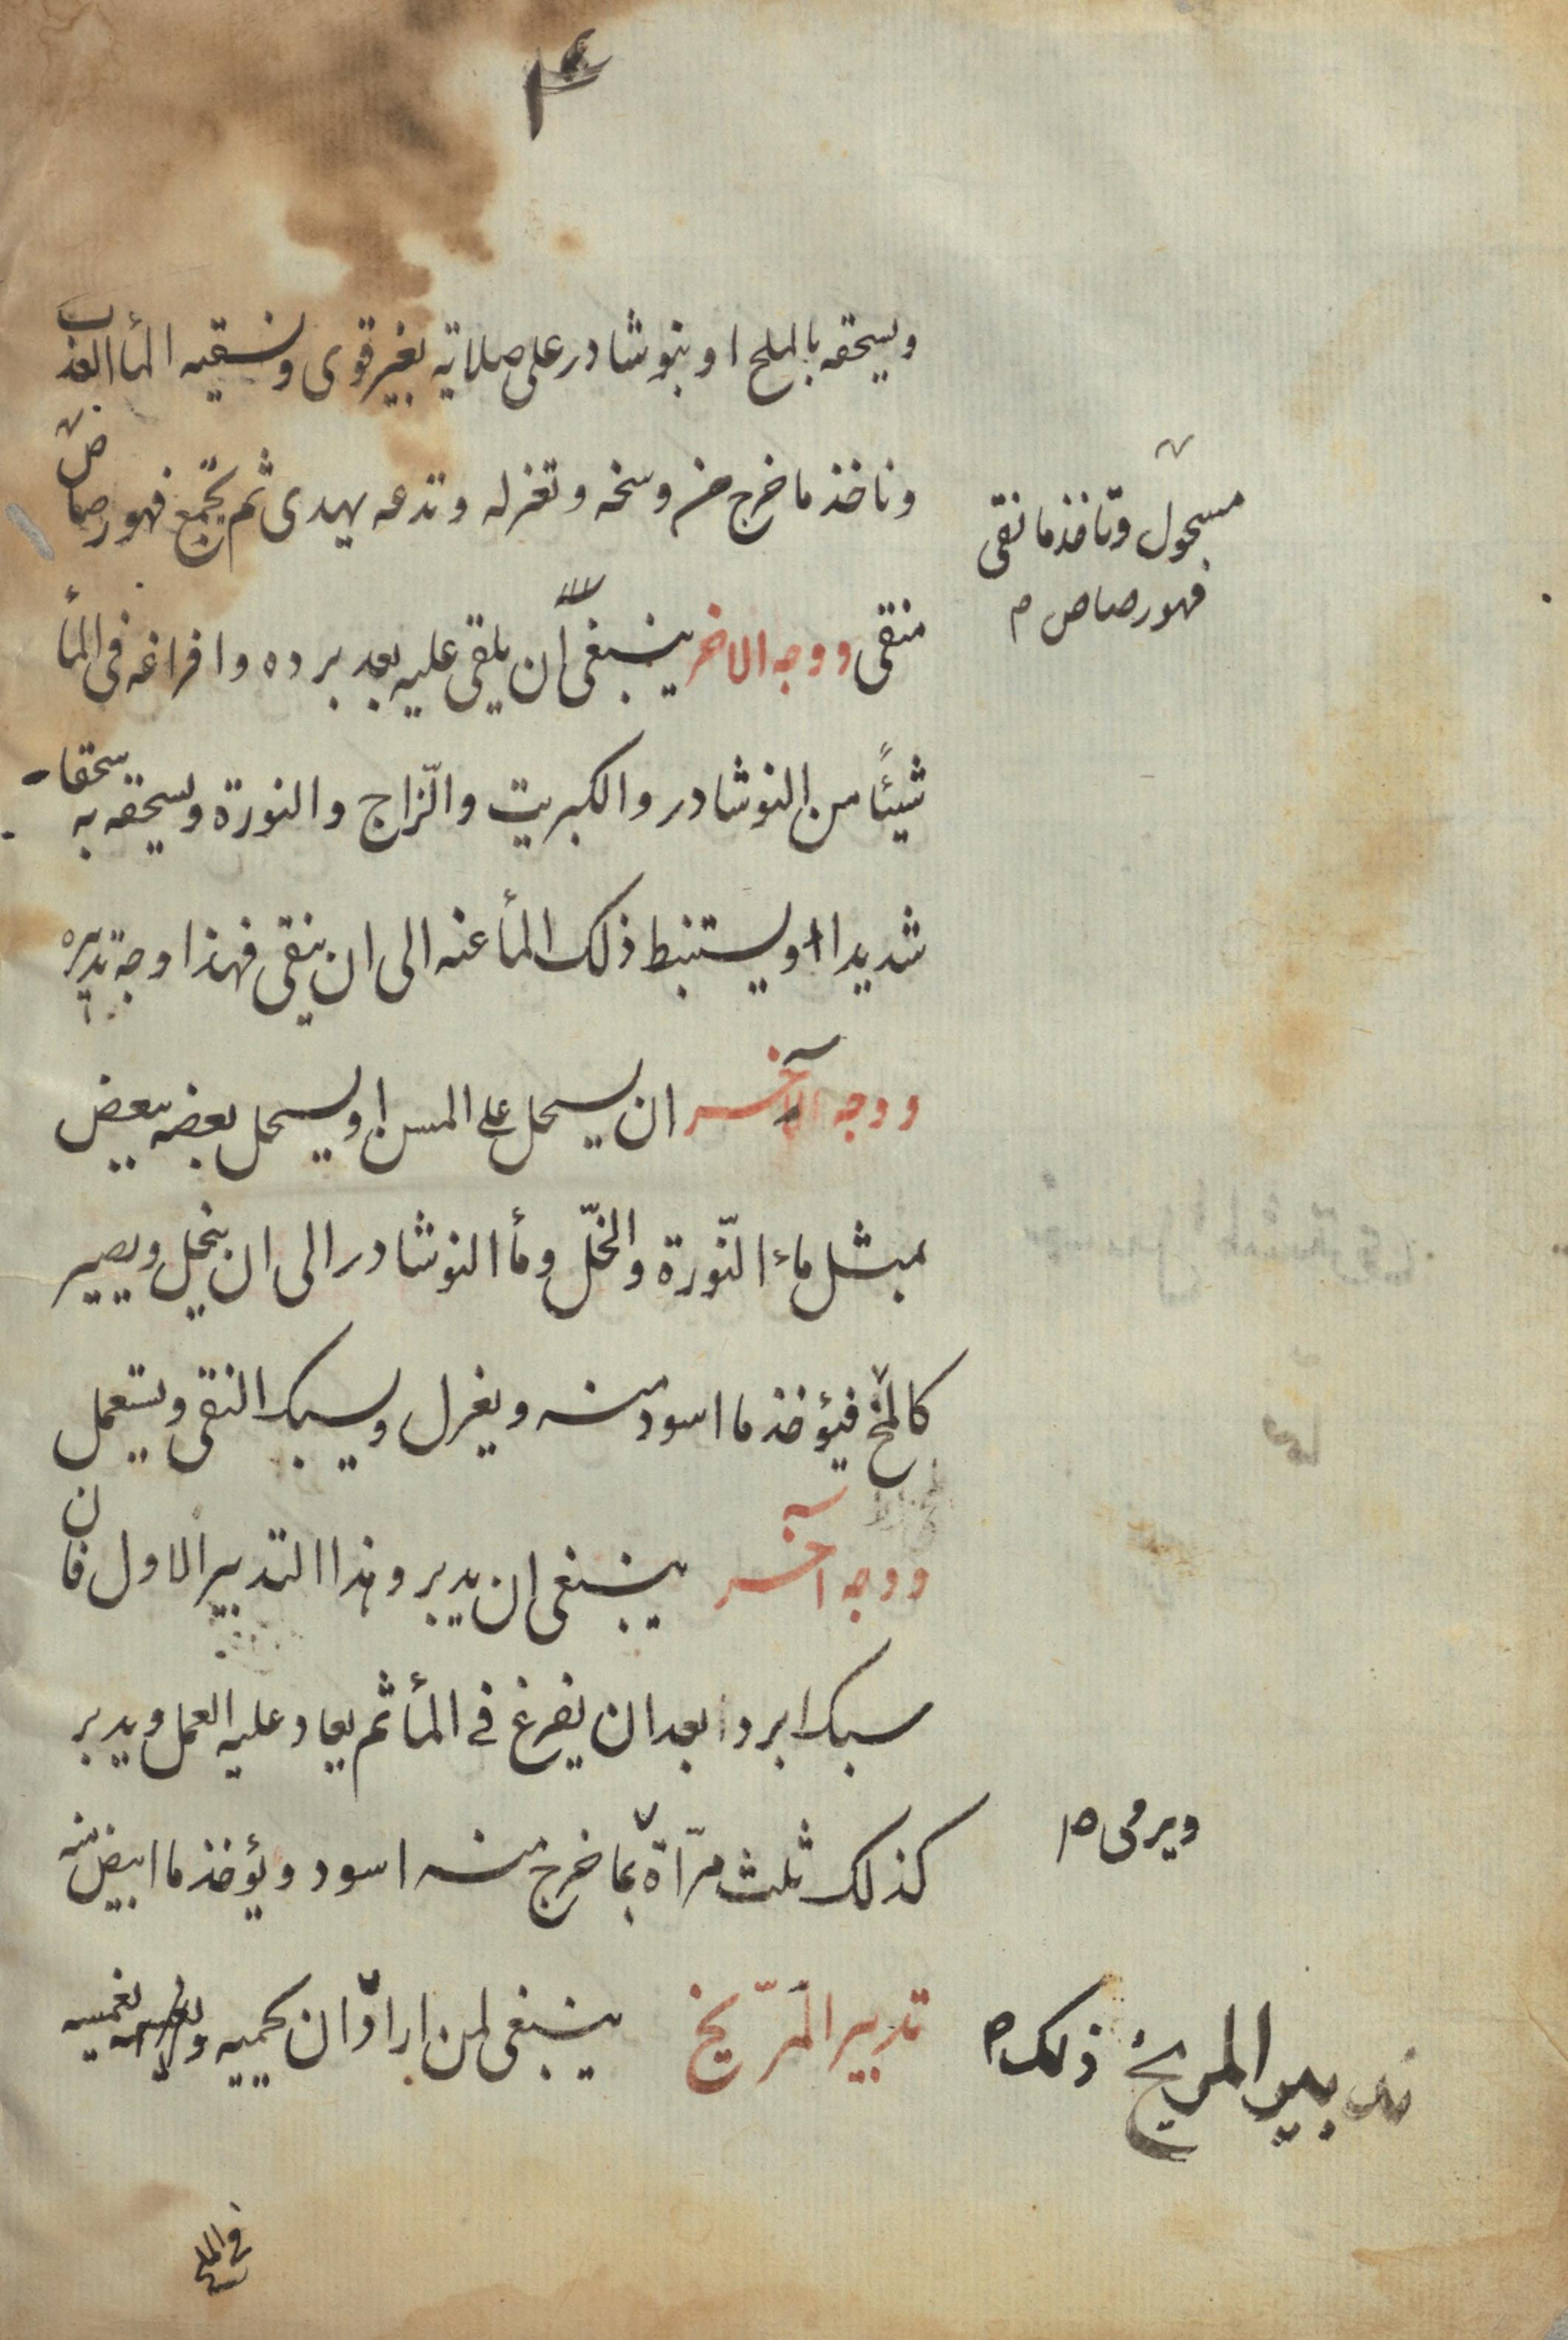 ويسحقه بالملح او بنوشادر على صلاتية بغير قوى ونسقيه المأ العذب
وناخذ ما خرج من وسخه وتغزله وتدعه يهدى ثم يجمع فهو رصاص
مسحول وتاخذ ما نقى
فهو رصاص م
منقى ووجه الاخر ينبغى ان يلقى عليه بعد برده وافراغه فى المأ
شيئًا من النوشادر والكبريت والزّاج والنورة ويسحقه به سحقا
شديدا ويستنبط ذلك المأ عنه الى ان ينقى فهذا وجه تدبيره
ووجه الآخر ان يسحل على المسن او يسحل بعضه ببعض
بمثل مائ النّورة والخلّ ومأ النوشادر الى ان ينحل ويصير
كالمخ فيؤخذ ما اسود منه ويغزل ويسبك النقى ويستعمل
ووجه آخر ينبغى ان يدبر وهذا التدبير الاول فان
سبك ابرد بعد ان يفرغ فى المأ ثم يعاد عليه العمل ويدبر
كذلك ثلث مرّاة بما خرج منه اسود ويؤخذ ما ابيض منه
ويرمى ص
تدبير المرّيخ ينبغى لمن اراد ان يحميه يغمسيه
تدبير المريخ ذلك ص
فى الملح